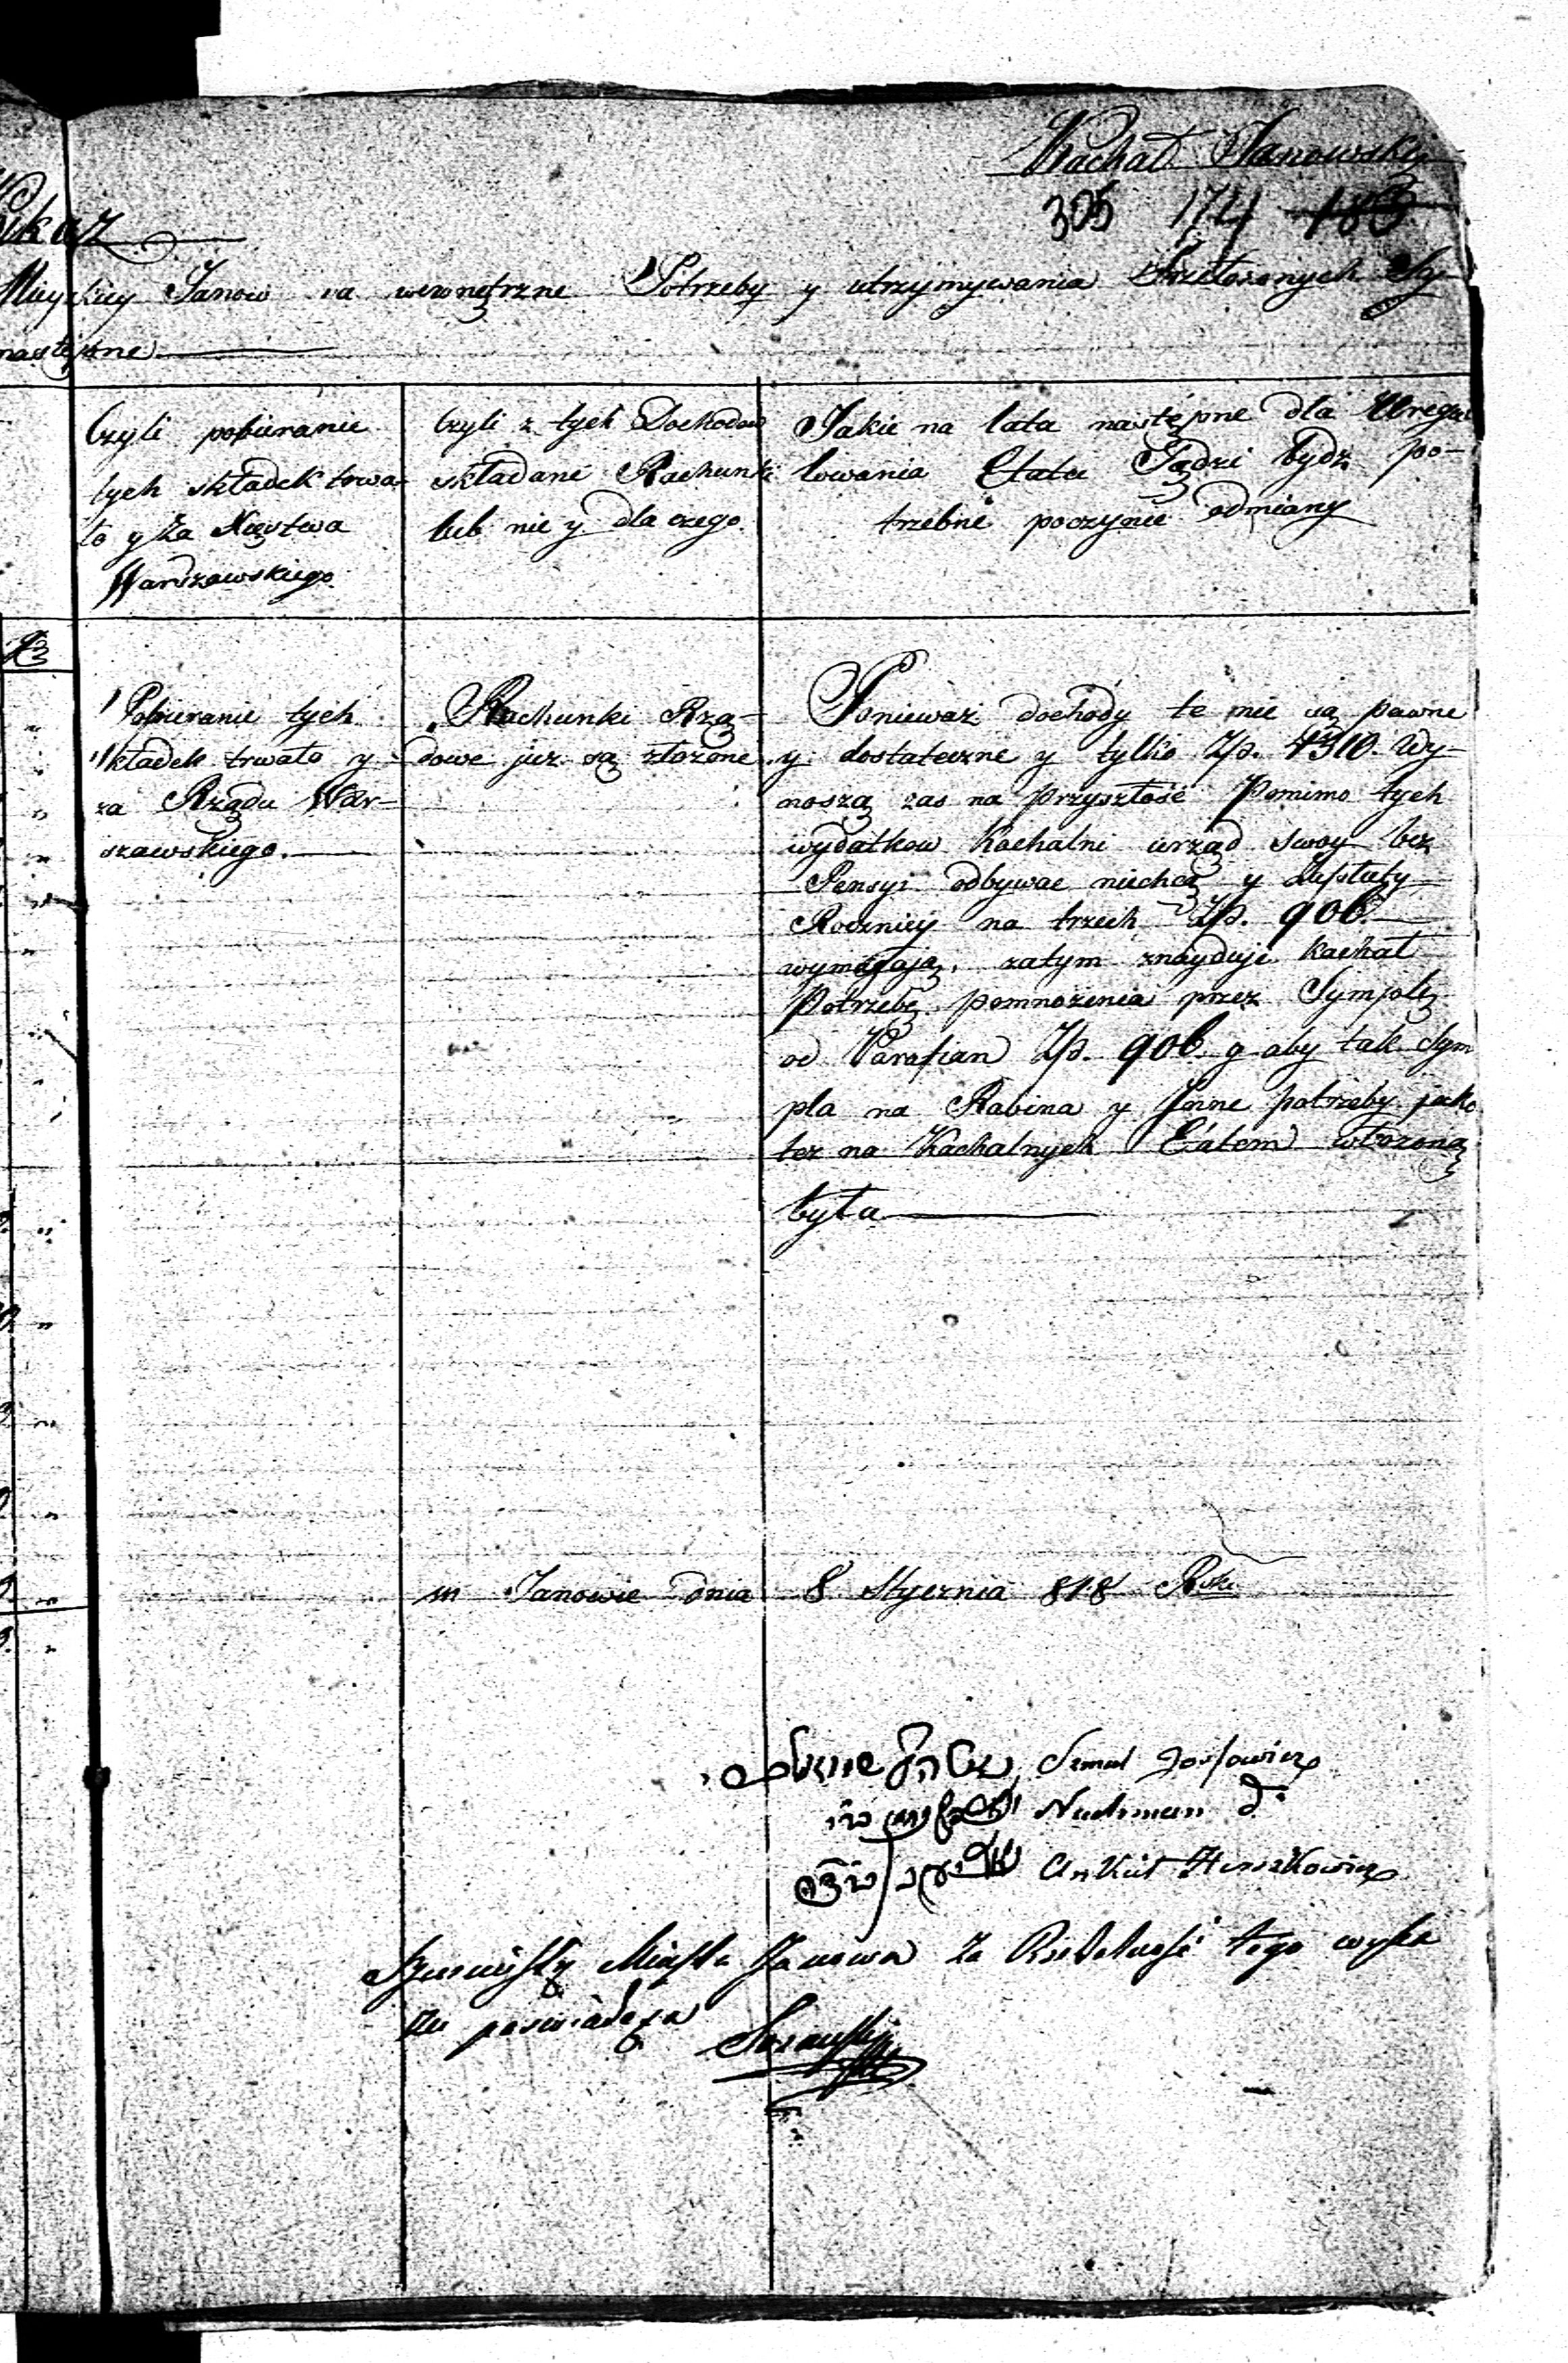 Kachał Janowsky
305 174 183
Wikaz
Mieyskiey Janow na wewnętrzne Potrzeby y utrzymywania Przełożonych Sy-
następne
Czyli pobieranie
tych składek trwa-
ło y za Xięstwa
Warszawskiego
Czyli z tych Dochodow
składane Rachunki
lub nie y dla czego
Jakie na lata następne dla Uregu
lowania Etatu Sądzi bydz po-
trzebne poczynić odmiany
Pobieranie tych
składek trwało y
za Rządu War-
szawskiego.
Rachunki Rzą-
dowe juz są złożone
Ponieważ dochody te nie są pewne
y dostateczne y tylko Złp. 4310. Wy-
noszą zas na przyszłość Pomimo tych
wydatkow Kachalni urząd swoy bez
Pensyi odbywac niechcą y Zapłaty
Roczniey na trzech Złp. 906
wymagają, zatym znayduje kachał
Potrzebę pomnożenia przez Symplę
od Parafian Złp. 906 y aby tak Sym
pla na Rabina y Inne potrzeby jako
tez na Kachalnych Etatem włożoną
była
w Janowie dnia 8 Stycznia 818 Rku
Szmul Josfowicz
Nachman d°
Ankiel Herszkowicz
Miasta Janowa za Rzetelność tego wyka
zu poswiadcza